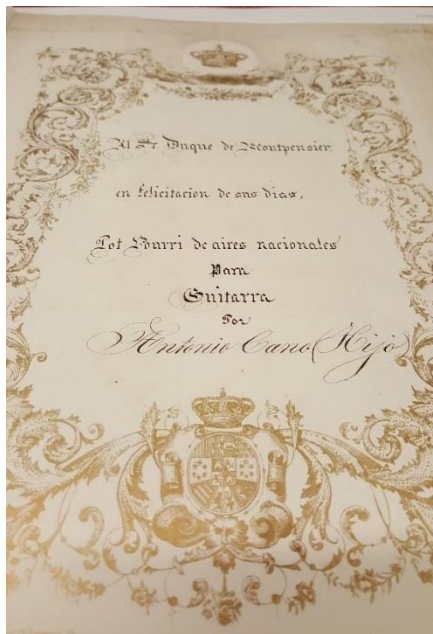 Al Sr Duque de Montpensier
en felicitacion de sus dias,
Pot Pourri de aires nacionales
Para
Guitarra
Por
Antonio Cano (Hijo)